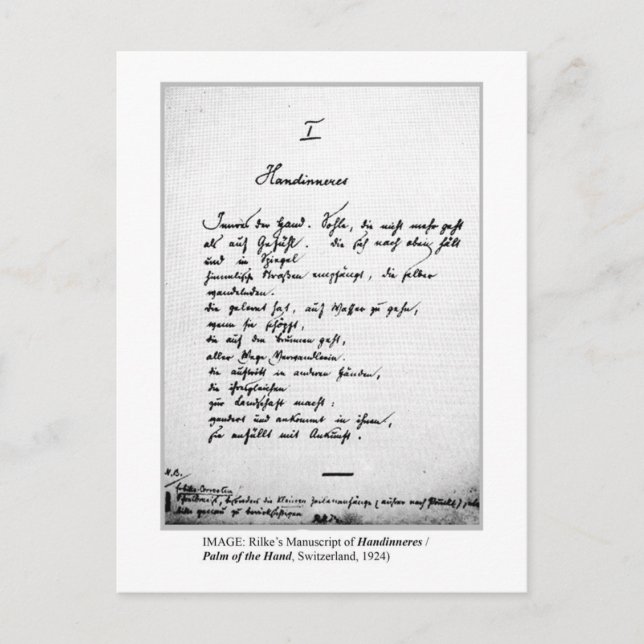 I
Handinneres
Innres der Hand. Sohle, die nicht mehr geht
als auf Gefühl. die sich nach oben hält
und im Spiegel
himmlische Straßen empfängt, die selber
wandelnden.
die gelernt hat, auf Wasser zu gehn,
wenn sie schöpft,
die auf den Brunnen geht,
aller Wege Verwandlerin.
die auftritt in anderen Händen,
die ihresgleichen
zur Landschaft macht:
wandert und ankommt in ihnen,
sie anfüllt mit Ankunft.
N.B.
besonders die kleinen Zeilenanfänge (außer nach Punkt),
bitte genau zu berücksichtigen
IMAGE: Rilke's Manuscript of Handinneres /
Palm of the Hand, Switzerland, 1924)